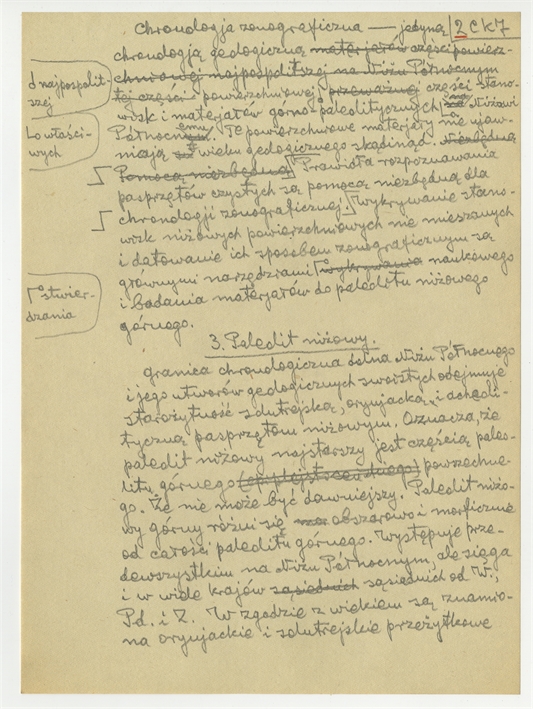 Chronologja zonograficzna — jedyną 2 CK7
chronologją geologiczną materjałów części powierz-
chniowej najpospolitszej na Niżu Północnym
tej części powierzchniowej, przeważnej części stano-
d najpospolit-
szej
wisk i materjałów górno-paleolitycznych na Niżowi
Lo właści-
wych
Północnemu. Te powierzchniowe materjały nie ujaw-
niają wieku geologicznego skądinąd. Niezbędną
Pomocą niezbędną Prawidła rozpoznawania
pasprzętów czystych są pomocą niezbędną dla
chronologji zonograficznej. Wykrywanie stano-
wisk niżowych powierzchniowych nie mieszanych
i datowanie ich sposobem zonograficznym są
głównymi narzędziami wykrywania naukowego
stwier-
dzania
i badania materjałów do paleolitu niżowego
górnego.
3. Paleolit niżowy.
Granica chronologiczna dolna Niżu Północnego
i jego utworów geologicznych swoistych odejmuje
starożytność solutrejską, orynjacką i acheuli-
tyczną pasprzętom niżowym. Oznacza, że
paleolit niżowy najstarszy jest częścią paleo-
litu górnego (epiplejstoceńskiego) powszechne-
go. Że nie może być dawniejszy. Paleolit niżo-
wy górny różni się obszarowo i morficznie
od całości paleolitu górnego. Występuje prze-
dewszystkim na Niżu Północnym, ale sięga
i w wiele krajów sąsiednich sąsiednich od W.,
Pd. i Z. W zgodzie z wiekiem są znamio-
na orynjackie i solutrejskie przeżytkowe